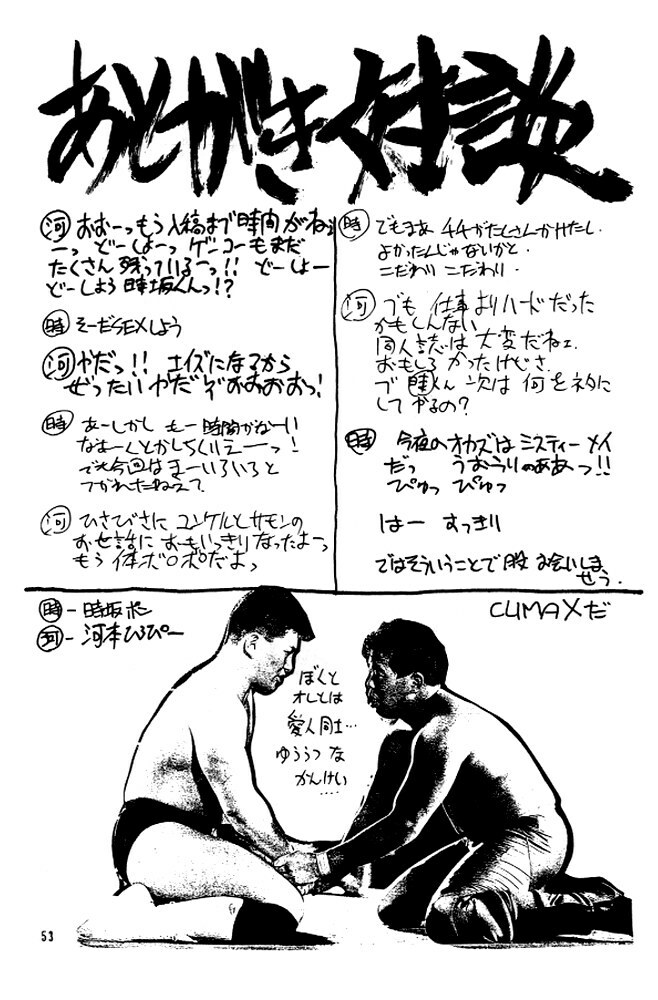 あとがき対談
河 おおーっもう入稿まで時間がねぇ
ーっ どーしよーっ ゲンコーもまだ
たくさん残っているーっ!! どーしよー
どーしよう時坂くんっ!?
時 そーだSEXしよう
河 ヤだっ!! エイズになるから
ぜったいヤだぞおおおおっ!
時 あーしかし もー時間がねーい
なまーくとかしちくりえーーっ!
でも今回はまーいろいろと
つかれたねぇって
河 ひさびさに ユンケルとサモンの
お世話に おもいっきりなったよーっ
もう 体ボロボロだよっ
時 でもまぁ チチがたくさんかけたし
よかったんじゃないかと・
こだわり こだわり・
河 でも 仕事よりハードだった
かもしんない
同人誌は大変だねェ
おもしろかったけどさ
で 時くん 次は 何をネタに
してやるの?
時 今夜のオカズはミスティーメイ
だっ うおうりゃああーっ!!
ぴゅっ ぴゅっ
はー すっきり
ではそういうことで 又 お会いしま
せう.
時 - 時坂
河 - 河本ひろぴー
CLIMAXだ
ぼくと
オレとは
愛人同士…
ゆううつな
かんけい
‥‥
53